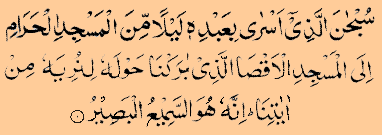 سُبْحٰنَ الَّذِیْۤ اَسْرٰی بِعَبْدِهٖ لَیْلًا مِّنَ الْمَسْجِدِ الْحَرَامِ
اِلَی الْمَسْجِدِ الْاَقْصَا الَّذِیْ بٰرَكْنَا حَوْلَهٗ لِنُرِیَهٗ مِنْ
اٰیٰتِنَا ؕ اِنَّهٗ هُوَ السَّمِیْعُ الْبَصِیْرُ ۝